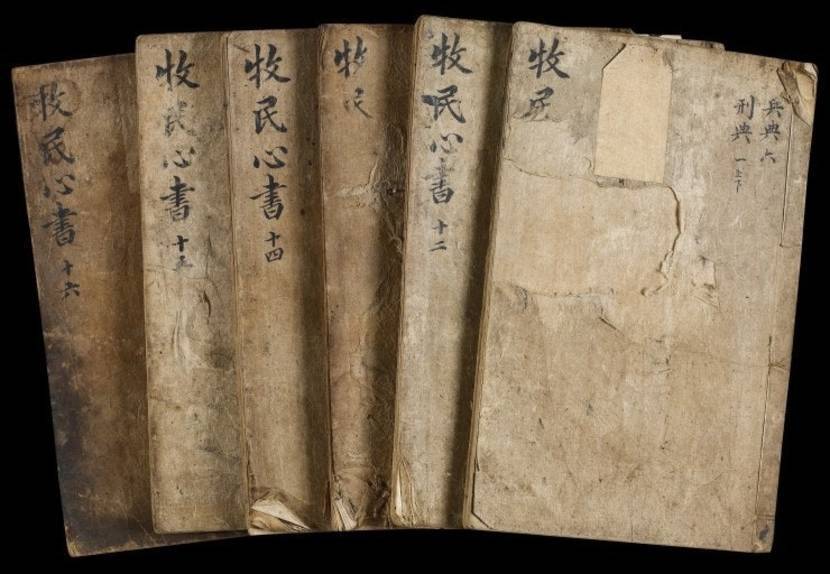 兵典 六
刑典 一上下
牧民
牧民心書 十二
牧民
牧民心書 十四
牧民心書 十五
牧民心書 十六